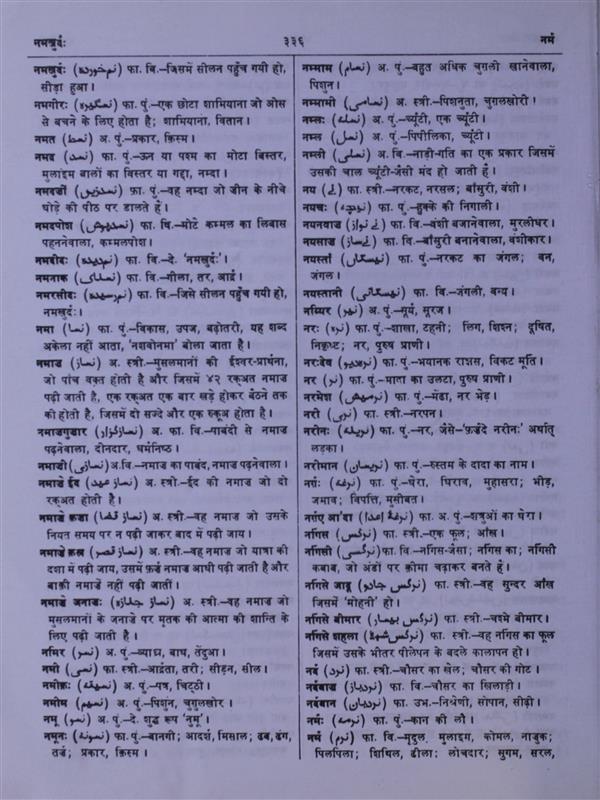 नमख़ुर्दः
३३६
नर्म
नमख़ुर्दः (نم خورده) फा. वि.-जिसमें सीलन पहुँच गयी हो,
सीड़ा हुआ।
नमगीरः (نمگیره) फा. पुं.-एक छोटा शामियाना जो ओस
से बचने के लिए होता है; शामियाना, वितान।
नमत (نمط) अ. पुं.-प्रकार, क़िस्म।
नमद (نمد) फा. पुं.-ऊन या पश्म का मोटा बिस्तर,
मुलाइम बालों का बिस्तर या गद्दा, नम्दा।
नमदज़ीं (نمدزین) फ़ा. पुं.-वह नम्दा जो ज़ीन के नीचे
घोड़े की पीठ पर डालते हैं।
नमदपोश (نمدپوش) फा. वि.-मोटे कम्मल का लिबास
पहननेवाला, कम्मलपोश।
नमदीदः (نم دیده) फा. वि.-दे. 'नमख़ुर्दः'।
नमनाक (نمناک) फा. वि.-गीला, तर, आर्द्र।
नमरसीदः (نم رسیده) फा. वि.-जिसे सीलन पहुँच गयी हो,
नमख़ुर्दः।
नमा (نما) फा. पुं.-विकास, उपज, बढ़ोतरी, यह शब्द
अकेला नहीं आता, 'नशवोनमा' बोला जाता है।
नमाज़ (نماز) अ. स्त्री.-मुसलमानों की ईश्वर-प्रार्थना,
जो पांच वक़्त होती है और जिसमें ४२ रक्अत नमाज़
पढ़ी जाती है, एक रक्अत एक बार खड़े होकर बैठने तक
की होती है, जिसमें दो सज्दे और एक रुकूअ होता है।
नमाज़गुज़ार (نمازگزار) अ. फा. वि.-पाबंदी से नमाज़
पढ़नेवाला, दीनदार, धर्मनिष्ठ।
नमाज़ी (نمازی) अ. वि.-नमाज़ का पाबंद, नमाज़ पढ़नेवाला।
नमाज़े ईद (نماز عید) अ. स्त्री.-ईद की नमाज़ जो दो
रक्अत होती है।
नमाज़े क़ज़ा (نماز قضا) अ. स्त्री.-वह नमाज़ जो उसके
नियत समय पर न पढ़ी जाकर बाद में पढ़ी जाय।
नमाज़े क़स्र (نماز قصر) अ. स्त्री.-वह नमाज़ जो यात्रा की
दशा में पढ़ी जाय, उसमें फ़र्ज़ नमाज़ आधी पढ़ी जाती है और
बाक़ी नमाज़ें नहीं पढ़ी जातीं।
नमाज़े जनाज़ः (نماز جنازه) अ. स्त्री.-वह नमाज़ जो
मुसलमानों के जनाज़े पर मृतक की आत्मा की शान्ति के
लिए पढ़ी जाती है।
नमिर (نمر) अ. पुं.-व्याघ्र, बाघ, तेंदुआ।
नमी (نمی) फा. स्त्री.-आर्द्रता, तरी; सीड़न, सील।
नमीक़ः (نمیقه) अ. पुं.-पत्र, चिट्ठी।
नमीम (نمیم) अ. पुं.-पिशुन, चुगुलख़ोर।
नमू (نمو) अ. पुं.-दे. शुद्ध रूप 'नुमू'।
नमूनः (نمونه) फा. पुं.-बानगी; आदर्श, मिसाल; ढब, ढंग,
तर्ज़; प्रकार, क़िस्म।
नम्माम (نمام) अ. पुं.-बहुत अधिक चुग़ली खानेवाला,
पिशुन।
नम्मामी (نمامی) अ. स्त्री.-पिशुनता, चुग़लख़ोरी।
नम्लः (نمله) अ. पुं.-च्यूँटी, एक च्यूँटी।
नम्ल (نمل) अ. पुं.-पिपीलिका, च्यूँटी।
नम्ली (نملی) अ. वि.-नाड़ी-गति का एक प्रकार जिसमें
उसकी चाल च्यूँटी-जैसी मंद हो जाती है।
नय (نے) फा. स्त्री.-नरकट, नरसल; बाँसुरी, वंशी।
नयचः (نیچه) फा. पुं.-हुक्के की निगाली।
नयनवाज़ (نے نواز) फा. वि.-वंशी बजानेवाला, मुरलीधर।
नयसाज़ (نے ساز) फा. वि.-बाँसुरी बनानेवाला, वंशीकार।
नयस्ताँ (نیستاں) फा. पुं.-नरकट का जंगल; वन,
जंगल।
नयस्तानी (نیستانی) फा. वि.-जंगली, वन्य।
नय्यिर (نیر) अ. पुं.-सूर्य, सूरज।
नरः (نره) फा. पुं.-शाखा, टहनी; लिंग, शिश्न; दूषित,
निकृष्ट; नर, पुरुष प्राणी।
नरःदेव (نره دیو) फा. पुं.-भयानक राक्षस, विकट मूर्ति।
नर (نر) फा. पुं.-मादा का उलटा, पुरुष प्राणी।
नरमेश (نرمیش) फा. पुं.-मेंढा, नर भेड़।
नरी (نری) फा. स्त्री.-नरपन।
नरीनः (نرینه) फा. पुं.-नर, जैसे-'फ़र्ज़ंदे नरीनः' अर्थात्
लड़का।
नरीमान (نریمان) फा. पुं.-रुस्तम के दादा का नाम।
नर्ग़ः (نرغه) फा. पुं.-घेरा, घिराव, मुहासरा; भीड़,
जमाव; विपत्ति, मुसीबत।
नर्ग़ए आ'दा (نرغۂ اعدا) फा. अ. पुं.-शत्रुओं का घेरा।
नर्गिस (نرگس) फा. स्त्री.-एक फूल; आँख।
नर्गिसी (نرگسی) फा. वि.-नर्गिस-जैसा; नर्गिस का; नर्गिसी
कबाब, जो अंडों पर क़ीमा चढ़ाकर बनते हैं।
नर्गिसे जादू (نرگس جادو) फा. स्त्री.-वह सुन्दर आँख
जिसमें 'मोहनी' हो।
नर्गिसे बीमार (نرگس بیمار) फा. स्त्री.-चश्मे बीमार।
नर्गिसे शहला (نرگس شہلا) फा. स्त्री.-वह नर्गिस का फूल
जिसमें उसके भीतर पीलेपन के बदले कालापन हो।
नर्द (نرد) फा. स्त्री.-चौसर का खेल; चौसर की गोट।
नर्दबाज़ (نردباز) फा. वि.-चौसर का खिलाड़ी।
नर्दबान (نردبان) फा. उभ.-निश्रेणी, सोपान, सीढ़ी।
नर्मः (نرمه) फा. पुं.-कान की लौ।
नर्म (نرم) फा. वि.-मृदुल, मुलाइम, कोमल, नाज़ुक;
पिलपिला; शिथिल, ढीला; लोचदार; सुगम, सरल,